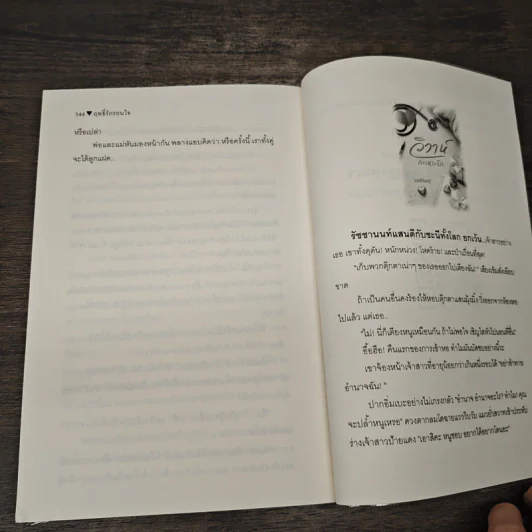 344 ♥ ฤทธิ์รักรอนใจ
หรือเปล่า
พ่อและแม่หันมองหน้ากัน พลางแอบคิดว่า หรือครั้งนี้ เราทั้งคู่
จะได้ลูกแฝด..
วิวาห์
รัชชานนท์แสนดีกับชะนีทั้งโลก ยกเว้น..เจ้าสาวอย่าง
เธอ เขาทั้งดุดัน! หนักหน่วง! โหดร้าย! และป่าเถื่อนที่สุด!
"เก็บพวกตุ๊กตาเน่าๆ ของเธอออกไปเดี๋ยวนี้!" เสียงเข้มสั่งเฉียบ
ขาด
ถ้าเป็นคนอื่นคงร้องไห้หอบตุ๊กตาแสนมุ้งมิ้ง วิ่งออกจากห้องหอ
ไปแล้ว แต่เธอ..
"ไม่! นี่ก็เตียงหนูเหมือนกัน ถ้าไม่พอใจ เชิญโซฟาไปนอนที่อื่น"
อื้อฮือ! คืนแรกของการเข้าหอ ทำไมมันบัดซบอย่างนี้วะ
เขาจ้องหน้าเจ้าสาวที่อายุน้อยกว่าเกินหนึ่งรอบได้ "อย่าท้าทาย
อำนาจฉัน! "
ปากอิ่มเบะอย่างไม่เกรงกลัว "อำนาจ อำนาจอะไร? ทำไม! คุณ
จะปล้ำหนูเหรอ" ดวงตากลมโตฉายแวววิบวับ
ร่างเจ้าสาวป้ายแดง "เอาสิคะ หนูชอบ อยากได้อยากโดนฮะ"